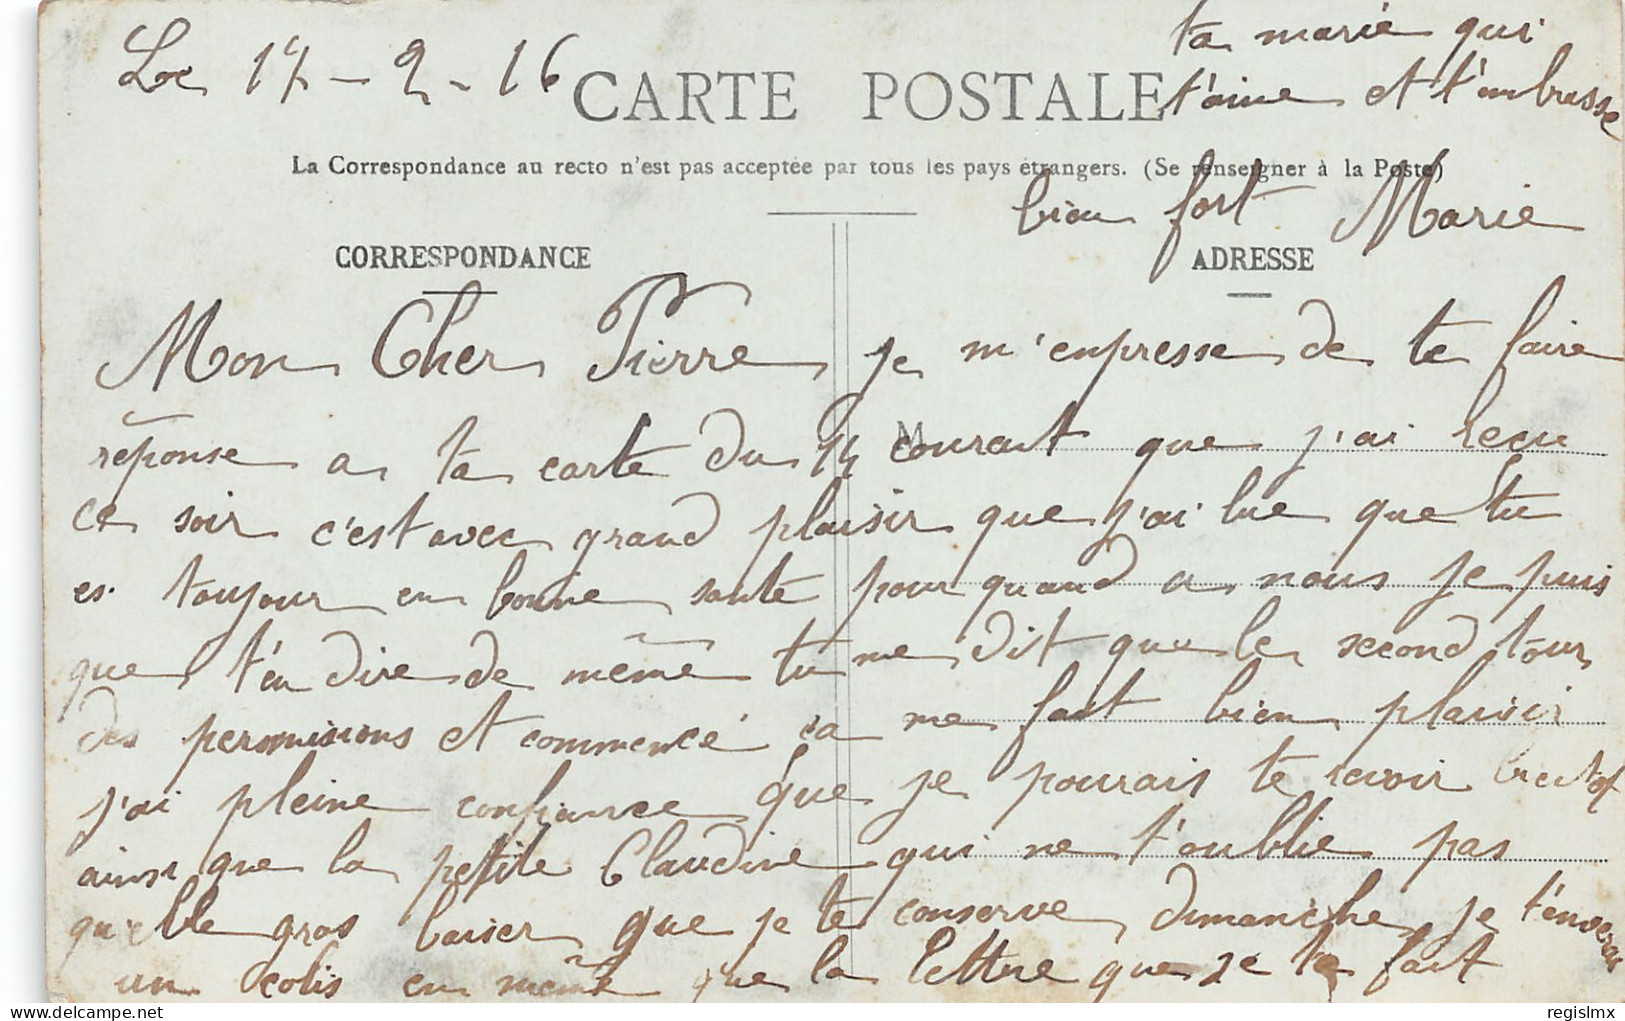 Le 17 - 2 - 16
CARTE POSTALE
La Correspondance au recto n'est pas acceptée par tous les pays étrangers. (Se renseigner à la Poste)
CORRESPONDANCE
ADRESSE
M
Mon Cher Pierre je m'enpresse de te faire
réponse a ta carte du 14 courant que j'ai recu
ce soir c'est avec grand plaisir que j'ai lue que tu
es toujour en bonne santé pour quand a nous je puis
que t'en dire de même tu me dit que le second tour
des permissions et commencé ca me fait bien plaisir
j'ai pleine confiance que je pourais te revoir
ainsi que la petite Claudine qui ne t'oublie pas
qu'elle gros baiser que je te conserve dimanche je t'enverai
un colis en même que la lettre que je te fait
ta marie qui
t'aime et t'embrasse
bien fort Marie
regislmx